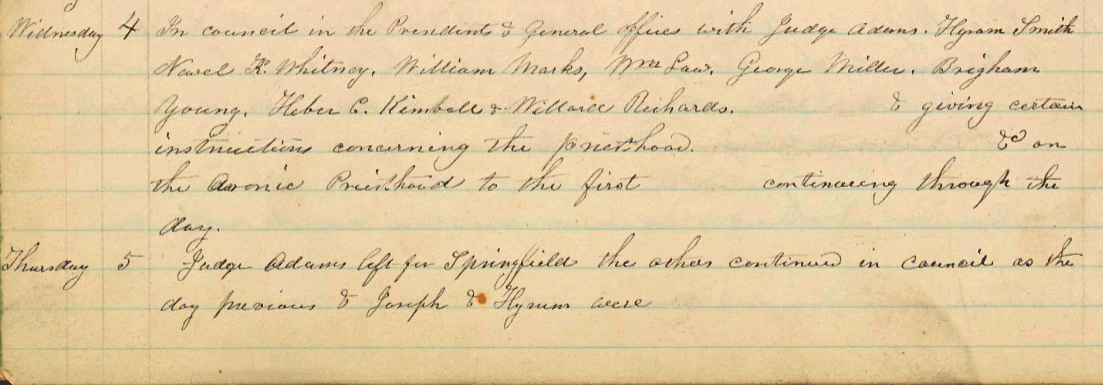 Wednesday 4 In council in the Presidents & General offices with Judge Adams. Hyram Smith
Newel K. Whitney. William Marks, Wm Law. George Miller. Brigham
Young. Heber C. Kimball & Willard Richards. & giving certain
instructions concerning the priesthood. &c on
the Aronic Priesthood to the first continueing through the
day.
Thursday 5 Judge Adams left for Springfield the others continued in council as the
day previous & Joseph & Hyrum were